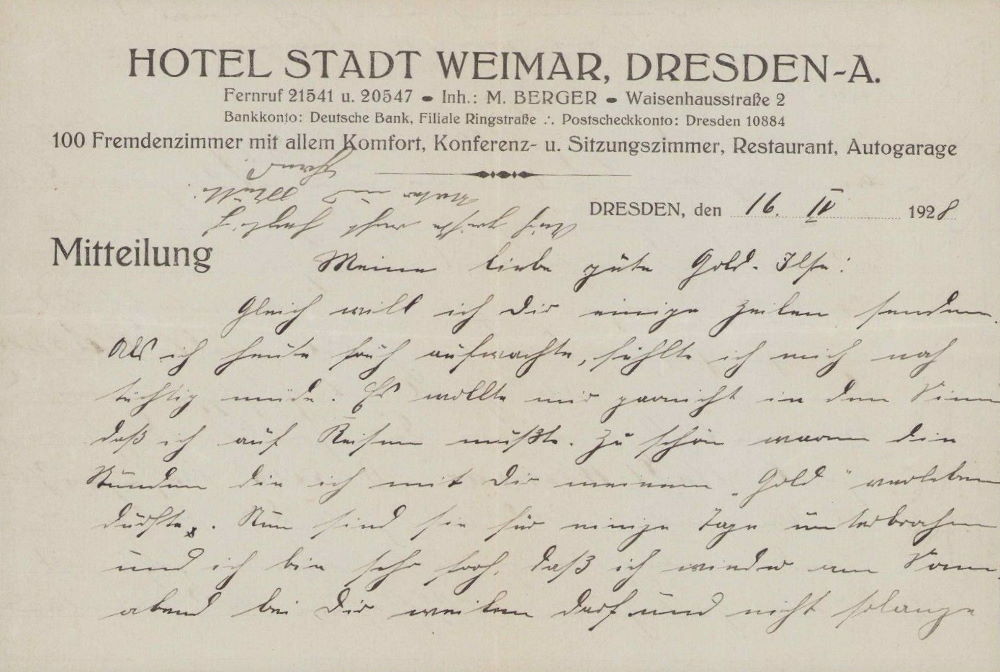 HOTEL STADT WEIMAR, DRESDEN-A.
Fernruf 21541 u. 20547 • Inh.: M. BERGER • Waisenhausstraße 2
Bankkonto: Deutsche Bank, Filiale Ringstraße ∴ Postscheckkonto: Dresden 10884
100 Fremdenzimmer mit allem Komfort, Konferenz- u. Sitzungszimmer, Restaurant, Autogarage
DRESDEN, den 16. IV 1928
Mitteilung
Meine liebe gute Gold-Ilse!
Gleich will ich Dir einige Zeilen senden.
Als ich heute früh aufwachte, fühlte ich mich noch
tüchtig müde. Es wollte mir garnicht in den Sinn
daß ich auf Reisen mußte. Zu schön waren die
Stunden die ich mit Dir meinem „Gold" verleben
durfte. Nun sind sie für einige Tage unterbrochen
und ich bin sehr froh, daß ich wieder am Sonn-
abend bei Dir weilen darf und nicht solange